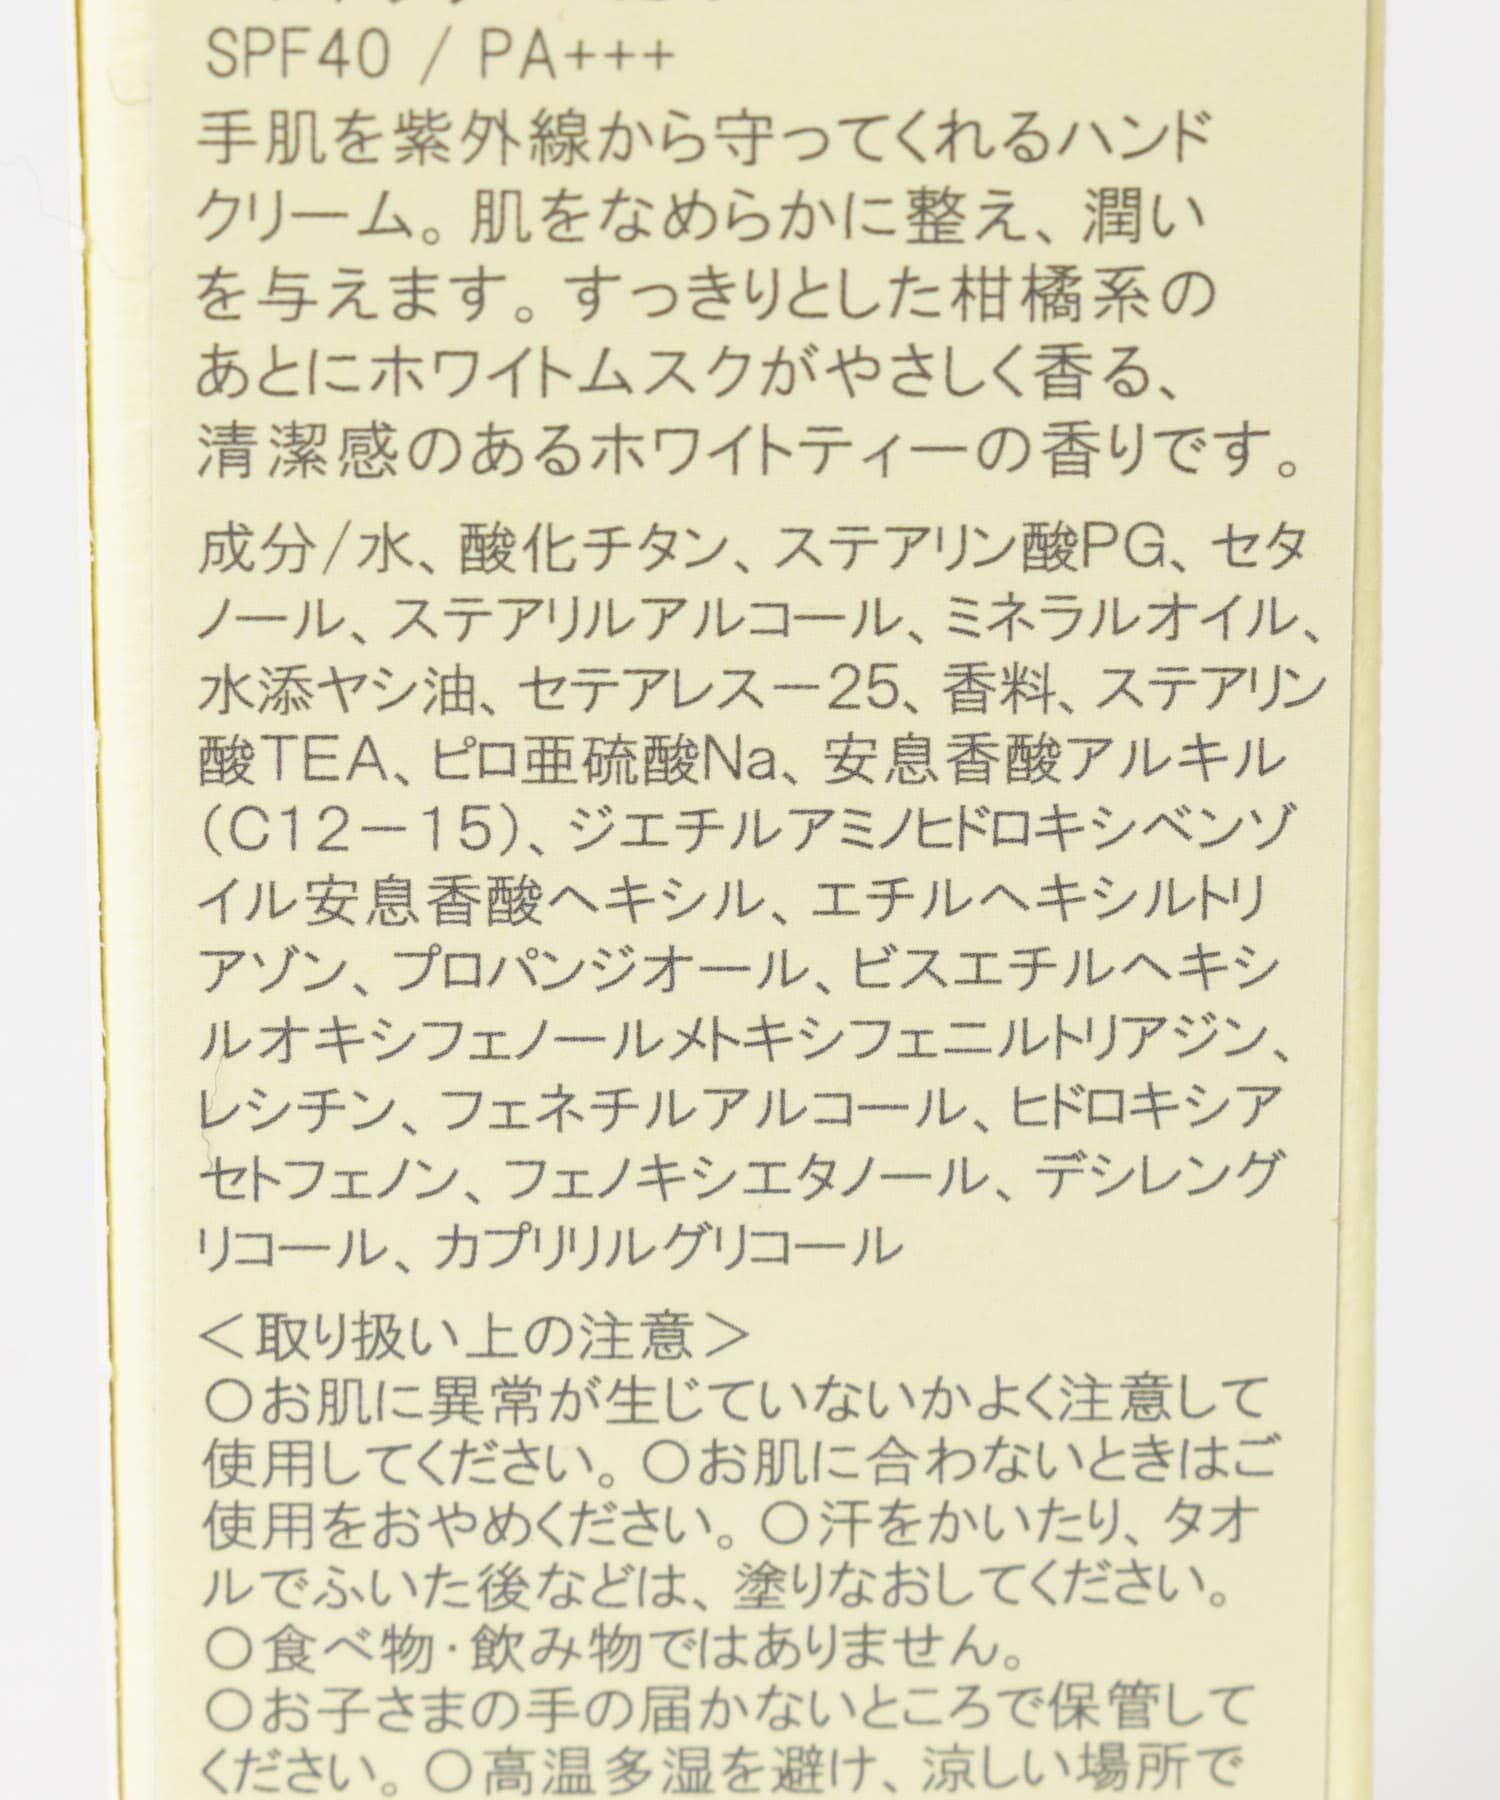 SPF40 / PA+++
手肌を紫外線から守ってくれるハンド
クリーム。肌をなめらかに整え、潤い
を与えます。すっきりとした柑橘系の
あとにホワイトムスクがやさしく香る、
清潔感のあるホワイトティーの香りです。
成分/水、酸化チタン、ステアリン酸PG、セタ
ノール、ステアリルアルコール、ミネラルオイル、
水添ヤシ油、セテアレス－25、香料、ステアリン
酸TEA、ピロ亜硫酸Na、安息香酸アルキル
(C12－15)、ジエチルアミノヒドロキシベンゾ
イル安息香酸ヘキシル、エチルヘキシルトリ
アゾン、プロパンジオール、ビスエチルヘキシ
ルオキシフェノールメトキシフェニルトリアジン、
レシチン、フェネチルアルコール、ヒドロキシア
セトフェノン、フェノキシエタノール、デシレング
リコール、カプリリルグリコール
＜取り扱い上の注意＞
○お肌に異常が生じていないかよく注意して
使用してください。○お肌に合わないときはご
使用をおやめください。○汗をかいたり、タオ
ルでふいた後などは、塗りなおしてください。
○食べ物・飲み物ではありません。
○お子さまの手の届かないところで保管して
ください。○高温多湿を避け、涼しい場所で